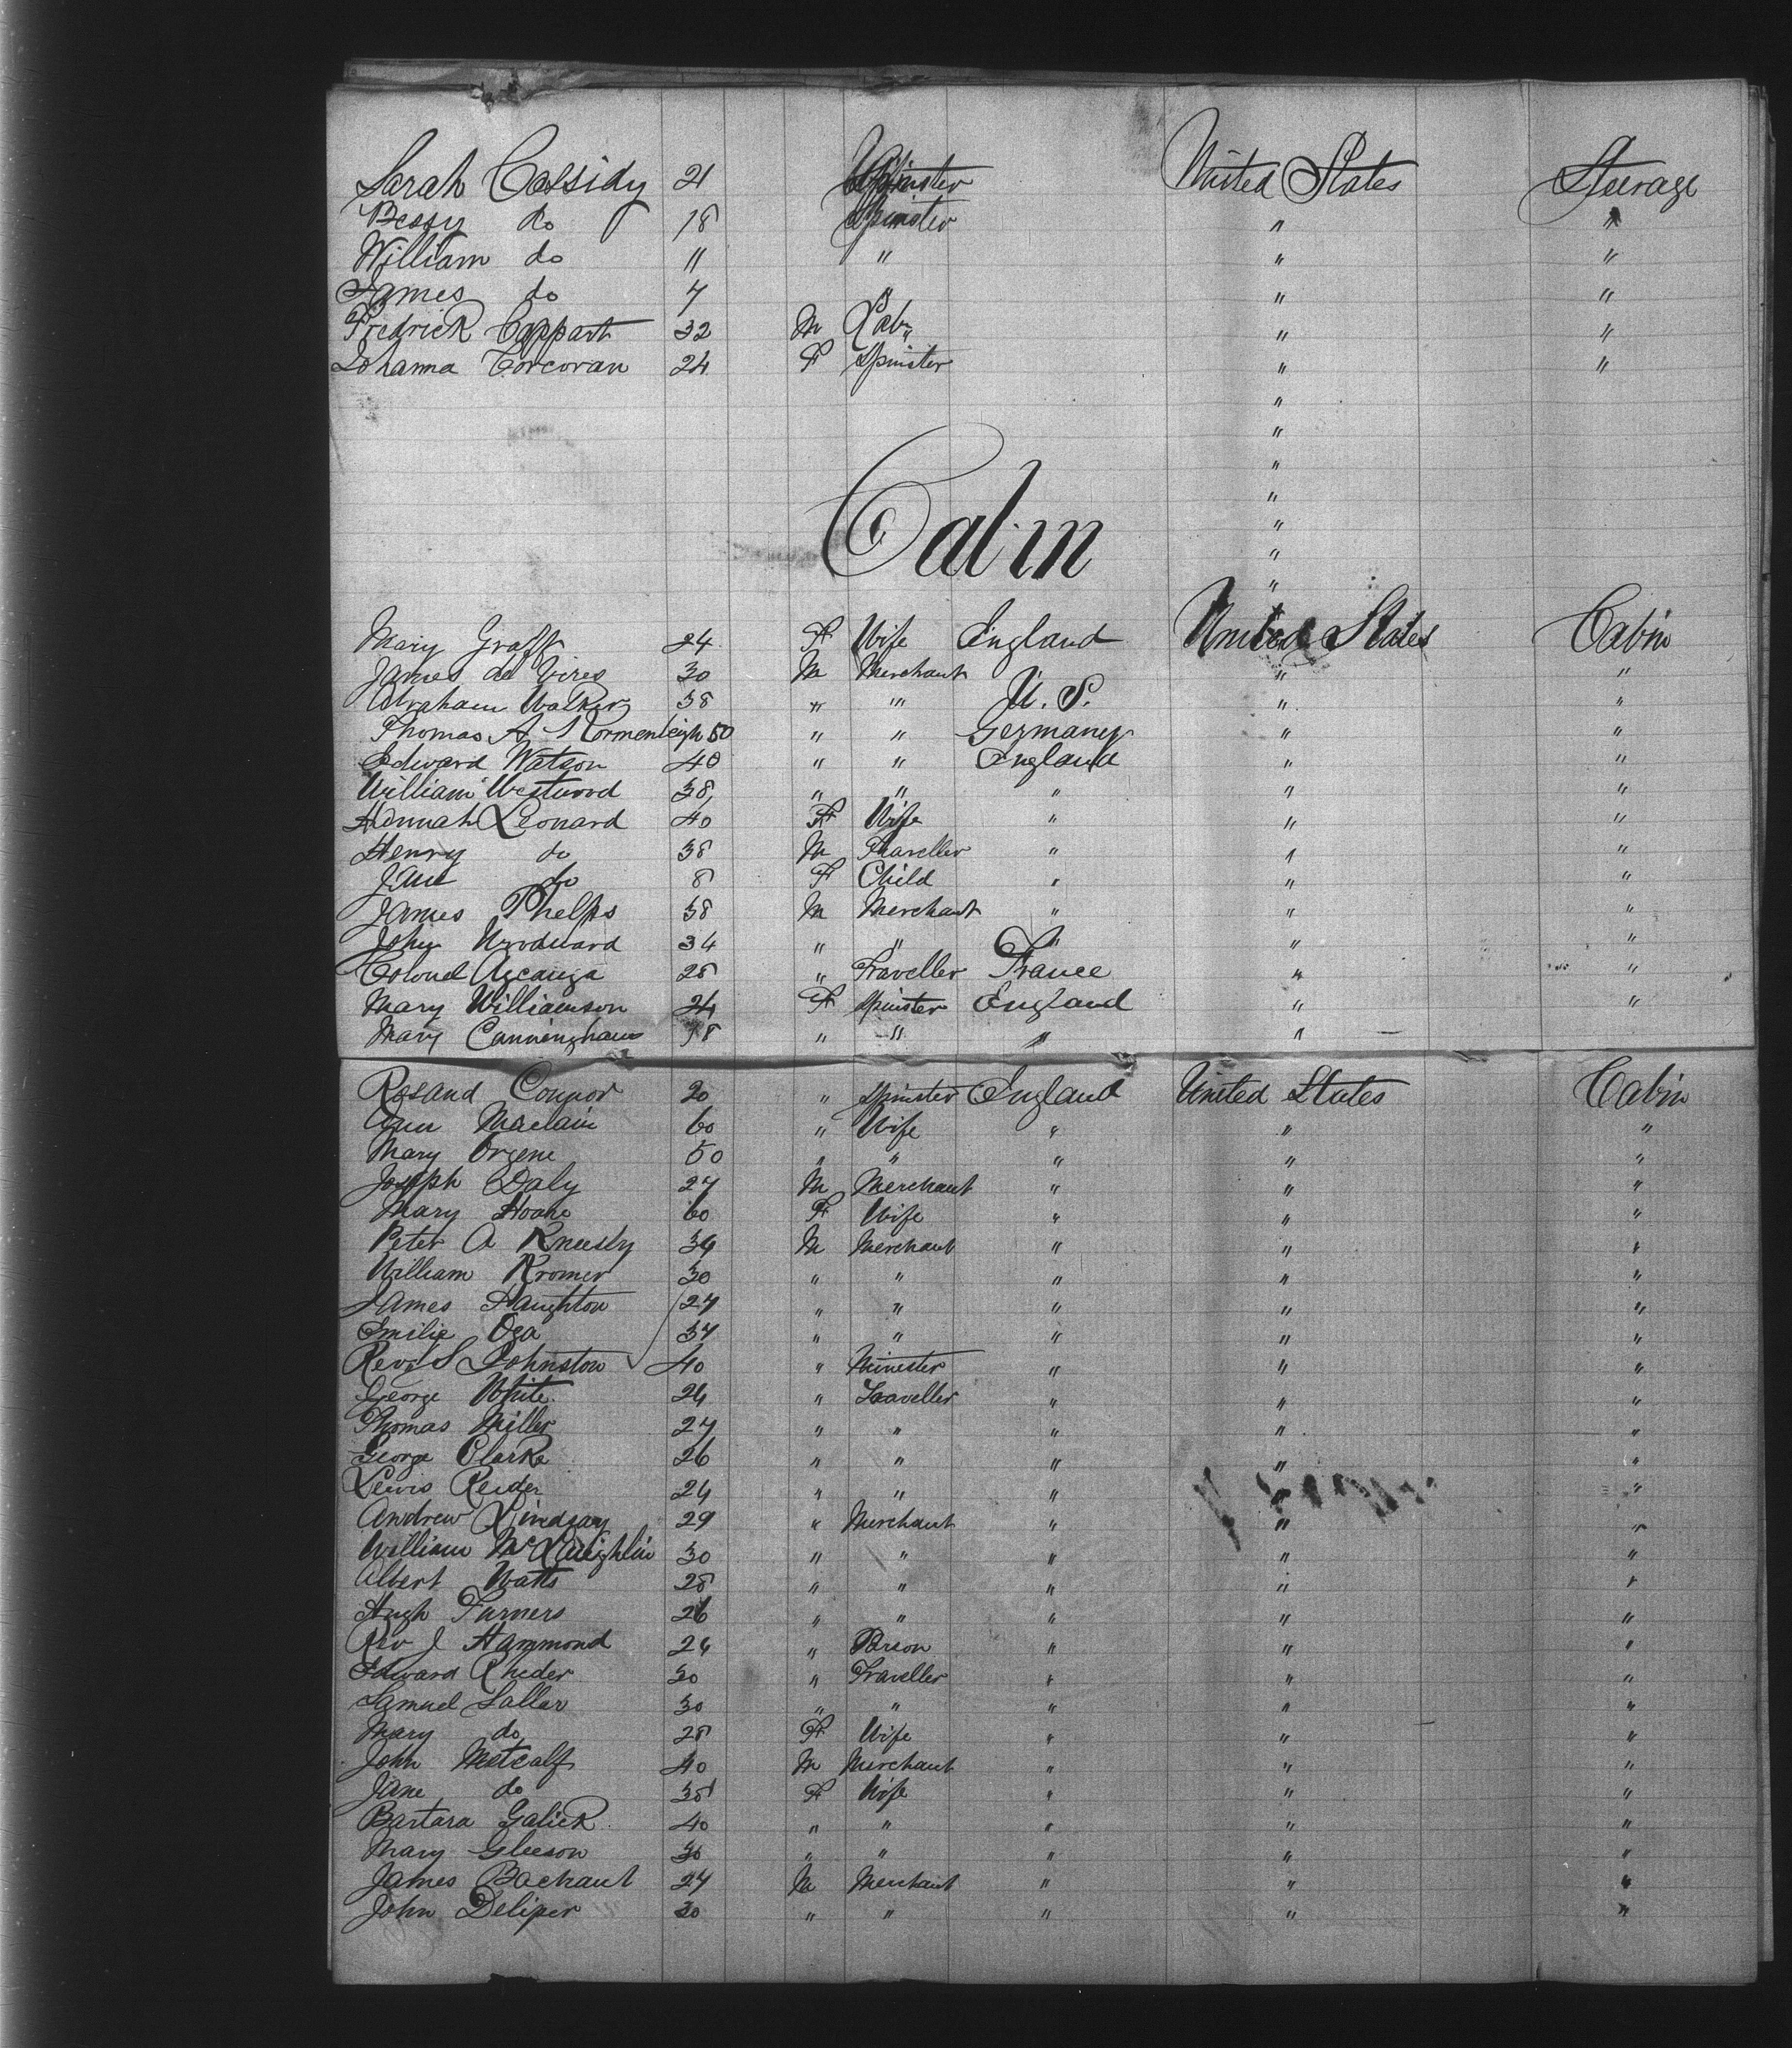 Sarah Cassidy 21 Spinster United States Steerage
Bessy do 18 Spinster " "
William do 11 " " "
James do 7 " " "
Fredrick Cappart 32 M Lab " "
Johanna Corcoran 24 F Spinster " "
"
"
"
"
"
"
Cabin "
Mary Graff 24 F Wife England United States Cabin
James de Vires 30 M Merchant " "
Abraham Walker 38 " " U. S. " "
Thomas A 50 " " Germany " "
Edward Watson 40 " " England " "
William Westwood 38 " " " " "
Hannah Leonard 40 F Wife " " "
Henry do 38 M Traveller " " "
Jane do 8 F Child " " "
James Phelps 38 M Merchant " " "
John Woodward 34 " " " " "
Colonel Azcanga 28 " Traveller France " "
Mary Williamson 24 F Spinster England " "
Mary Canningham 58 " " " "
Rosand Connor 20 " Spinster England United States Cabin
Ann Maclain 60 " Wife " " "
Mary Orgene 50 " " " " "
Joseph Daly 27 M Merchant " " "
Mary Hoane 60 F Wife " " "
Peter A Kneesly 34 M Merchant " " "
William Kromer 30 " " " " "
James Haughton 27 " " " " "
Emilie Oza 37 " " " " "
Revd S Johnston 40 " Minester " " "
George White 24 " Traveller " " "
Thomas Miller 27 " " " " "
George Clarke 26 " " " " "
Lewis Reider 24 " " " " "
Andrew Lindsay 29 " Merchant " " "
William McLaughlin 30 " " " " "
Albert Watts 28 " " " " "
Hugh Turners 26 " " " " "
Rev J Hammond 24 " Parson " " "
Edward Rheder 30 " Traveller " " "
Samuel Sallar 30 " " " " "
Mary do 28 F Wife " " "
John Metcalf 40 M Merchant " " "
Jane do 38 F Wife " " "
Bartara Galick 40 " " " " "
Mary Gleeson 30 " " " " "
James Bachant 27 M Merchant " " "
John Deliper 30 " " " " "